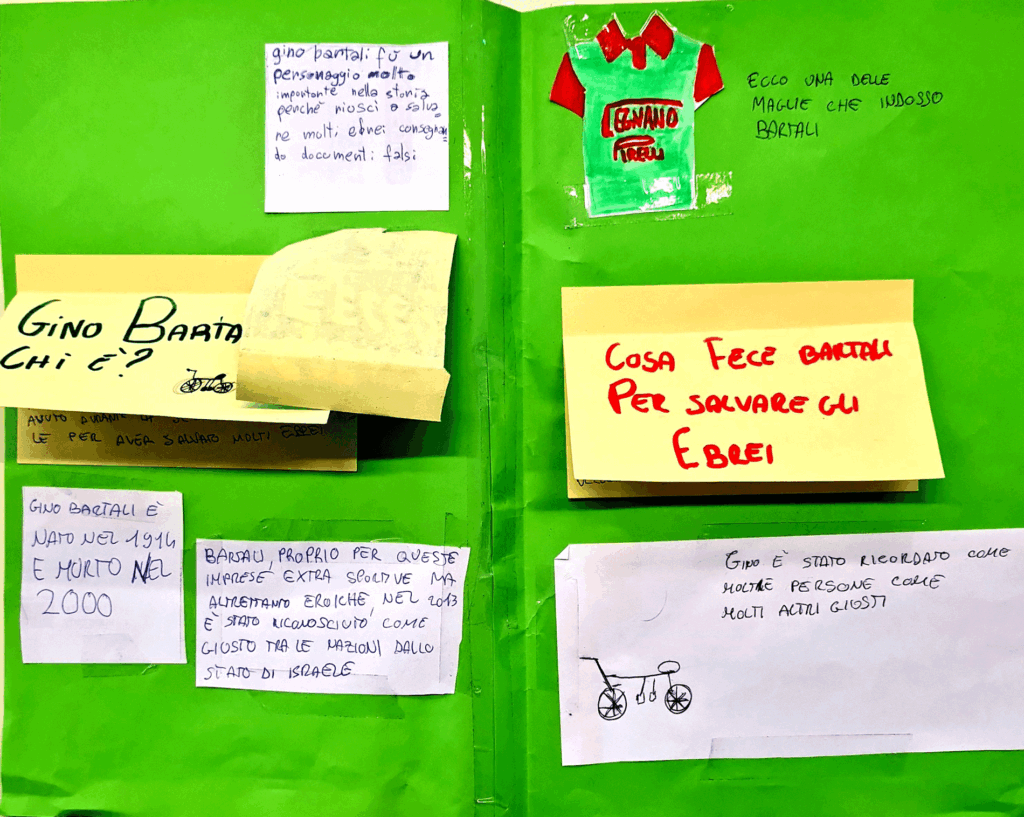 gino bartali fù un
personaggio molto
importante nella storia
perchè riuscì a salva
re molti ebrei consegnan
do documenti falsi
GINO BARTA
CHI È?
AVUTO DURANTE
LE PER AVER SALVATO MOLTI EBREI
GINO BARTALI È
NATO NEL 1914
E MORTO NEL
2000
BARTALI, PROPRIO PER QUESTE
IMPRESE EXTRA SPORTIVE MA
ALTRETTANTO EROICHE, NEL 2013
È STATO RICONOSCIUTO COME
GIUSTO TRA LE NAZIONI DALLO
STATO DI ISRAELE
LEGNANO
PIRELLI
ECCO UNA DELLE
MAGLIE CHE INDOSSO
BARTALI
COSA FECE BARTALI
PER SALVARE GLI
EBREI
GINO È STATO RICORDATO COME
MOLTRE PERSONE COME
MOLTI ALTRI GIUSTI